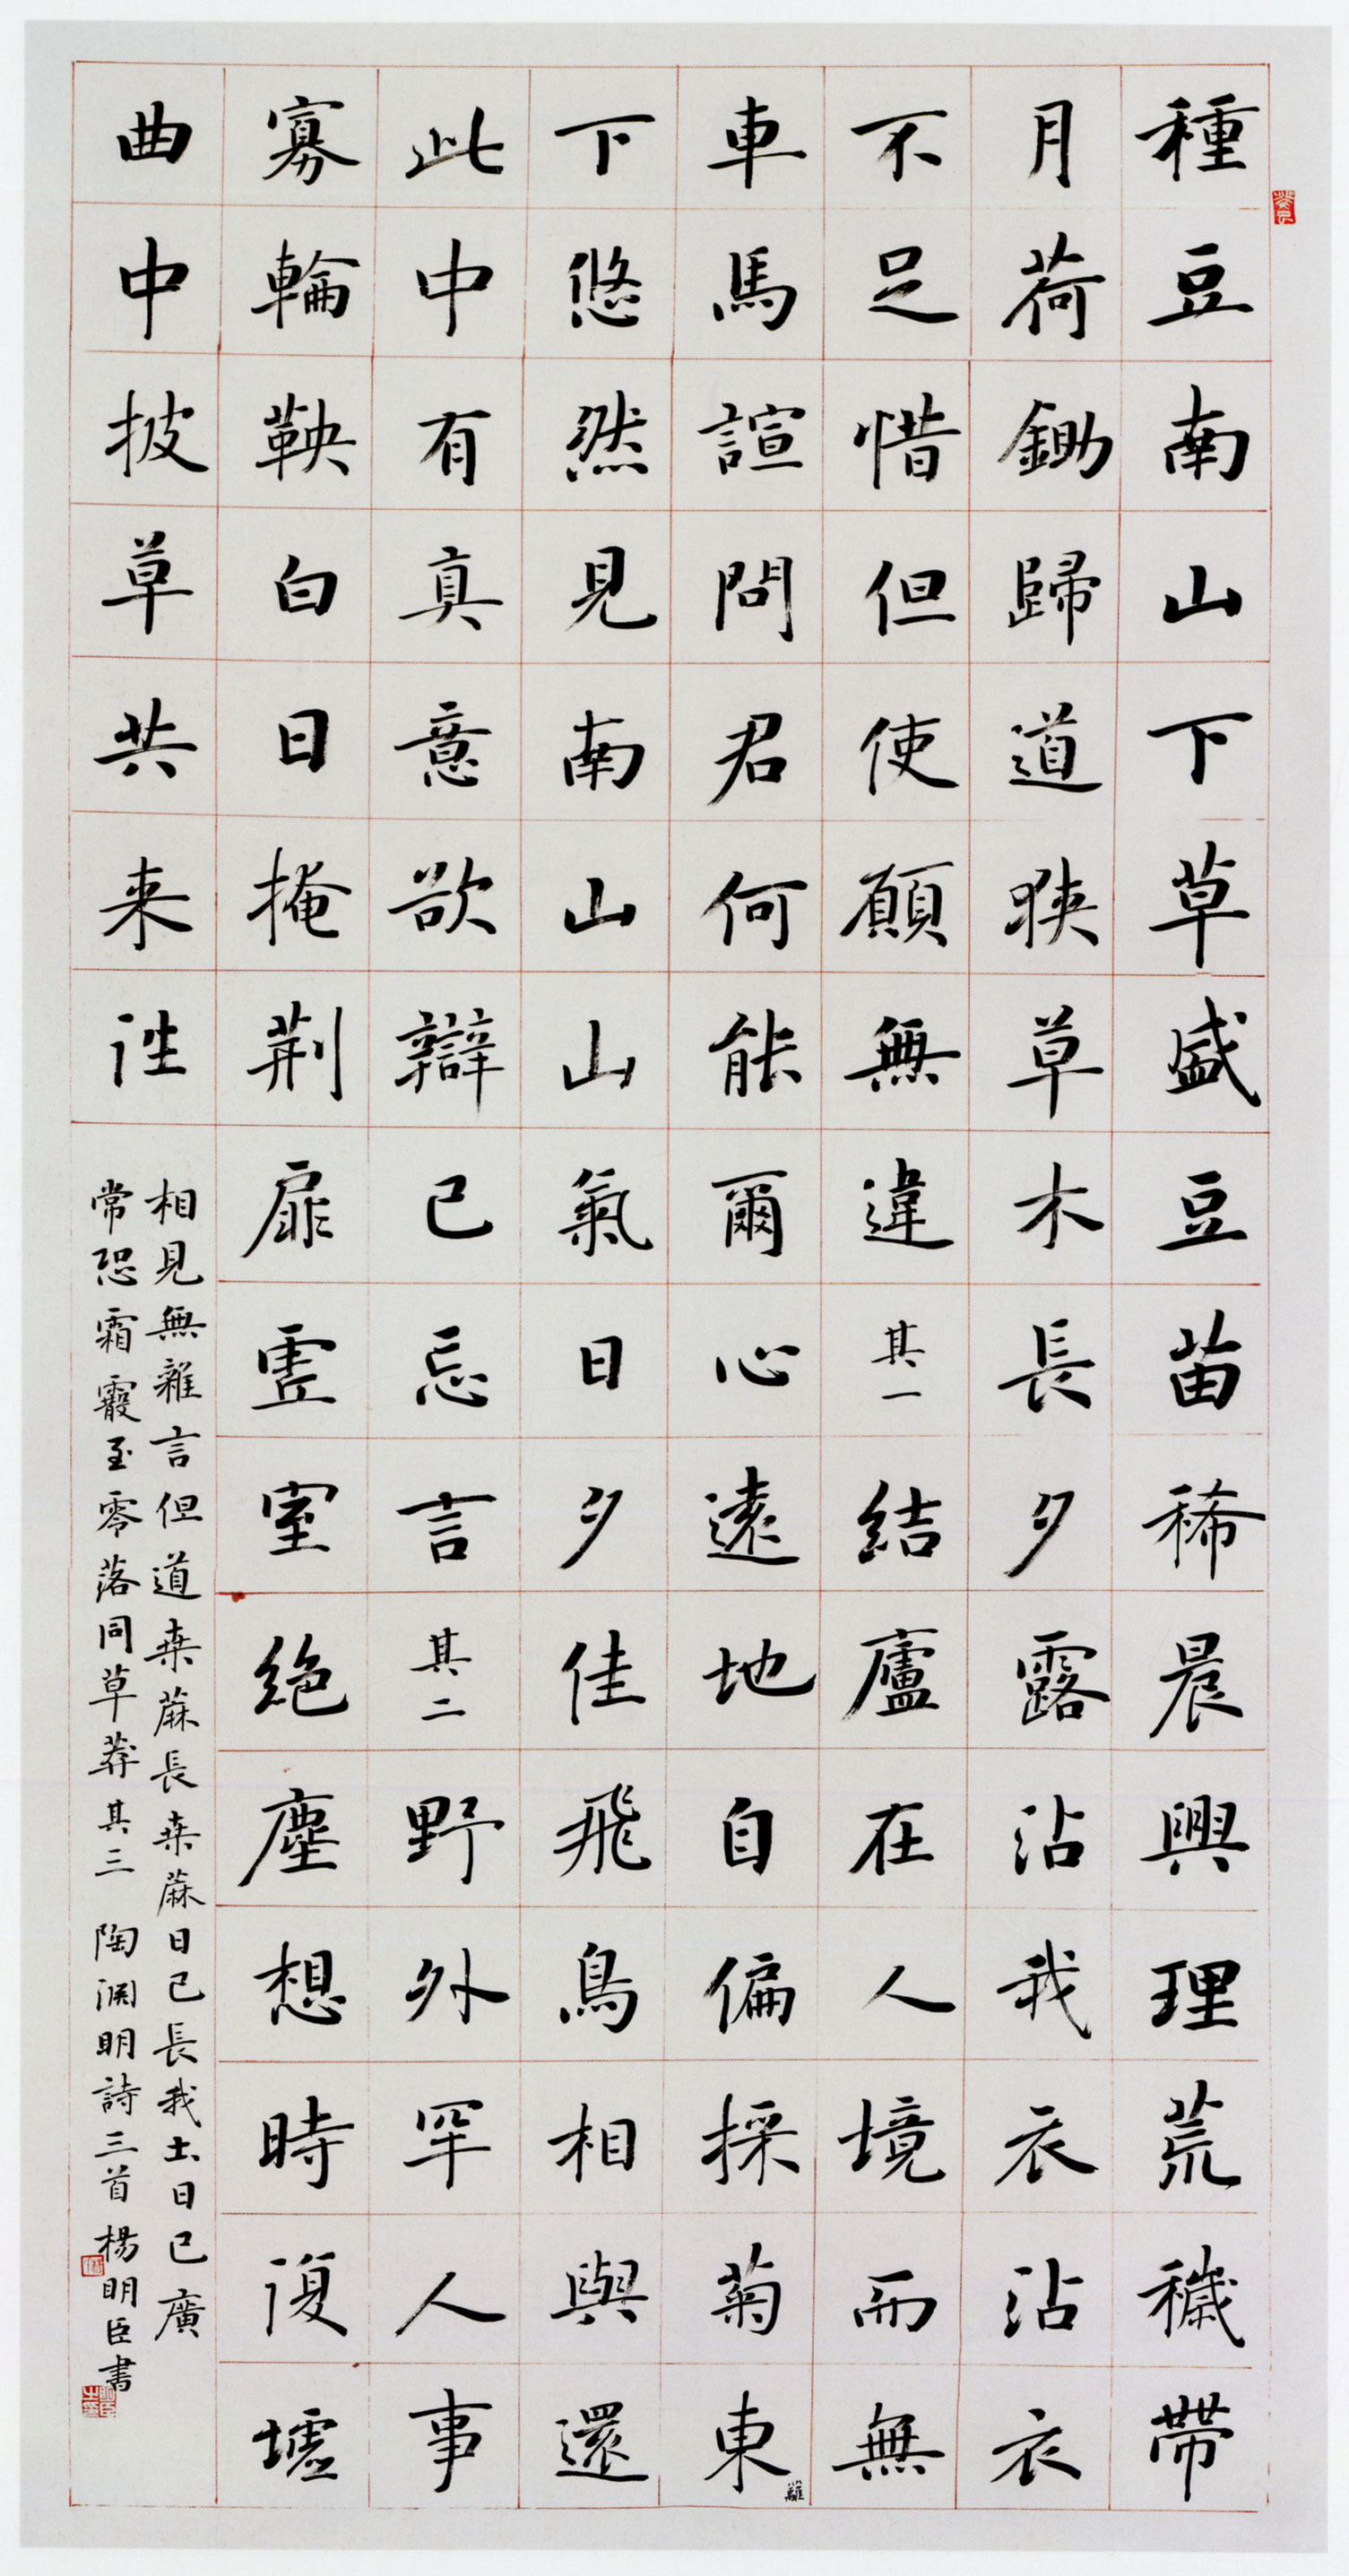 種豆南山下草盛豆苗稀晨興理荒穢帶
月荷鋤歸道狹草木長夕露沾我衣衣沾
不足惜但使願無違其一結廬在人境而無
車馬諠問君何能爾心遠地自偏採菊東籬
下悠然見南山山氣日夕佳飛鳥相與還
此中有真意欲辯已忘言其二野外罕人事
寡輪鞅白日掩荆扉虛室絶塵想時復墟
曲中披草共来往
相見無雜言但道桒蔴長桒蔴日已長我土日已廣
常恐霜霰至零落同草莽其三 陶淵明詩三首 楊明臣書